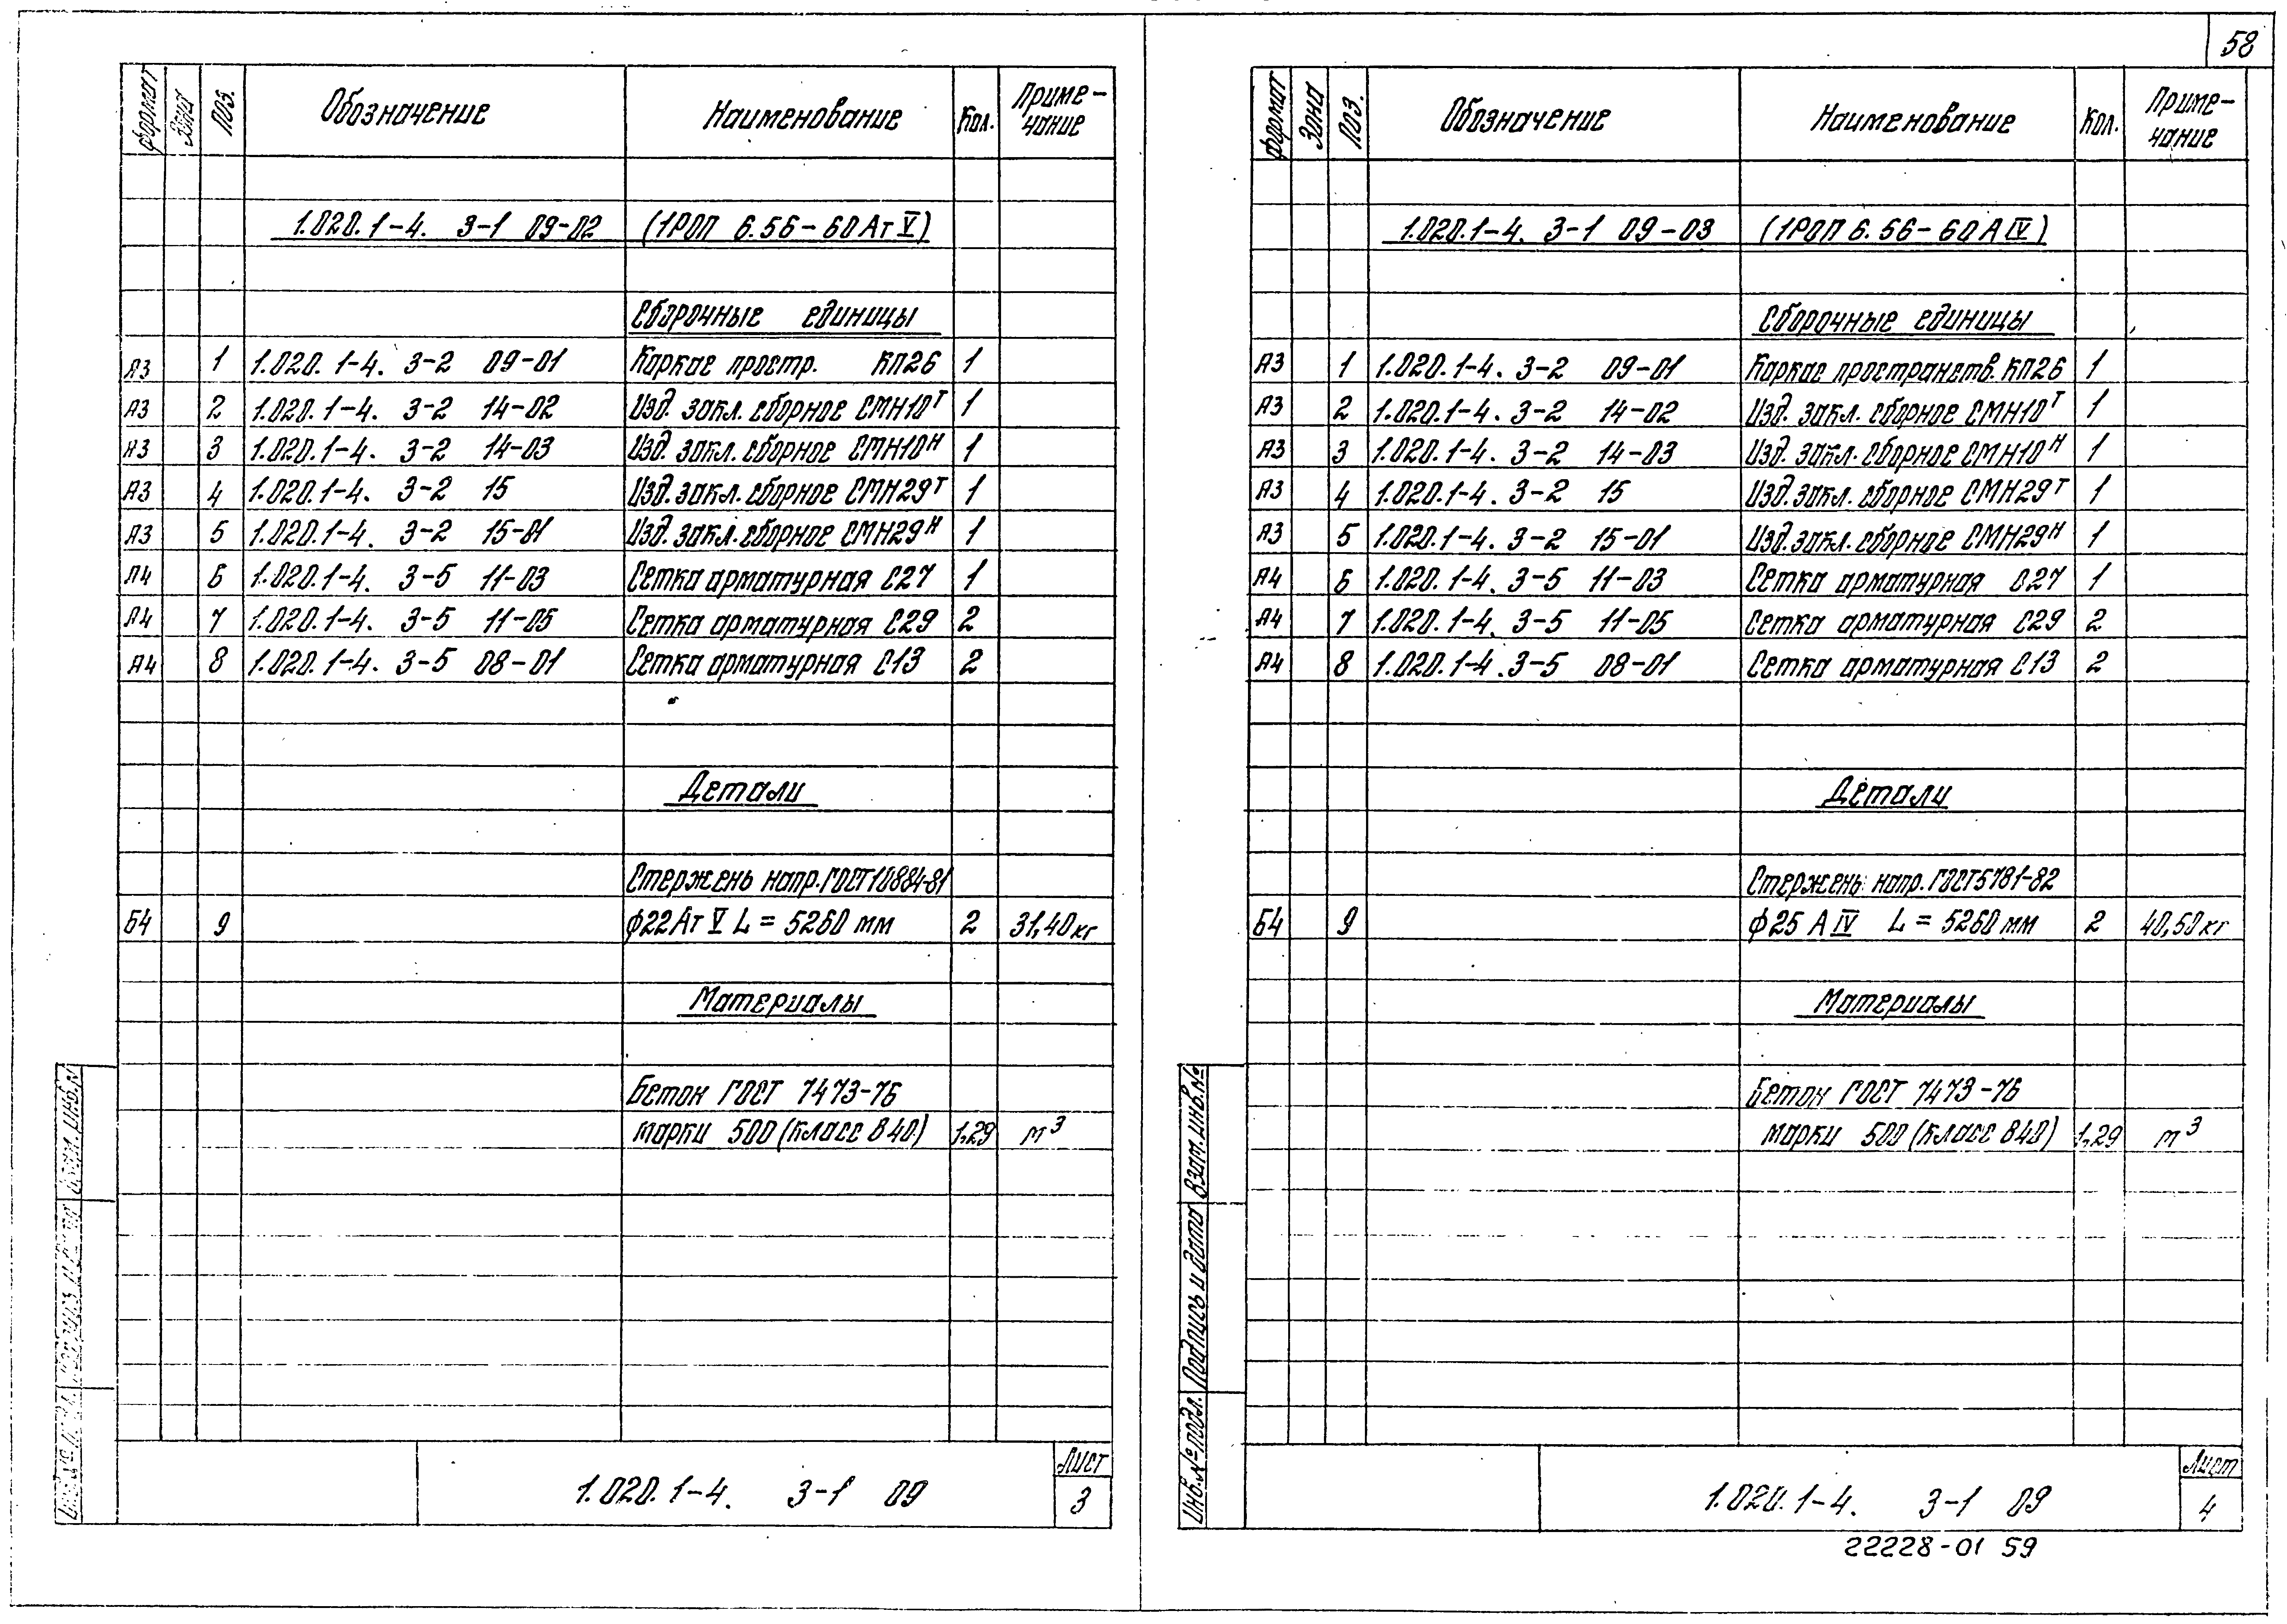 58
формат Зона Поз. Обозначение Наименование Кол. Приме-
чание
1.020.1-4. 3-1 09-02 (1РОП 6.56-60 Ат V)
Сборочные единицы
А3 1 1.020.1-4. 3-2 09-01 Каркас простр. КП26 1
А3 2 1.020.1-4. 3-2 14-02 Изд. закл. сборное СМН10Т 1
А3 3 1.020.1-4. 3-2 14-03 Изд. закл. сборное СМН10Н 1
А3 4 1.020.1-4. 3-2 15 Изд. закл. сборное СМН29Т 1
А3 5 1.020.1-4. 3-2 15-01 Изд. закл. сборное СМН29Н 1
А4 6 1.020.1-4. 3-5 11-03 Сетка арматурная С27 1
А4 7 1.020.1-4. 3-5 11-05 Сетка арматурная С29 2
А4 8 1.020.1-4. 3-5 08-01 Сетка арматурная С13 2
Детали
Стержень напр. ГОСТ 10884-81
Б4 9 ф22 Ат V L = 5260 мм 2 31,40 кг
Материалы
Бетон ГОСТ 7473-76
марки 500 (класс В40) 1,29 м³
1.020.1-4. 3-1 09
Лист
3
формат Зона Поз. Обозначение Наименование Кол. Приме-
чание
1.020.1-4. 3-1 09-03 (1РОП 6.56-60 А IV)
Сборочные единицы
А3 1 1.020.1-4. 3-2 09-01 Каркас пространств. КП26 1
А3 2 1.020.1-4. 3-2 14-02 Изд. закл. сборное СМН10Т 1
А3 3 1.020.1-4. 3-2 14-03 Изд. закл. сборное СМН10Н 1
А3 4 1.020.1-4. 3-2 15 Изд. закл. сборное СМН29Т 1
А3 5 1.020.1-4. 3-2 15-01 Изд. закл. сборное СМН29Н 1
А4 6 1.020.1-4. 3-5 11-03 Сетка арматурная С27 1
А4 7 1.020.1-4. 3-5 11-05 Сетка арматурная С29 2
А4 8 1.020.1-4. 3-5 08-01 Сетка арматурная С13 2
Детали
Стержень напр. ГОСТ 5781-82
Б4 9 ф25 А IV L = 5260 мм 2 40,50 кг
Материалы
Бетон ГОСТ 7473-76
марки 500 (класс В40) 1,29 м³
Инв. № подл. Подпись и дата Взам. инв. №
1.020.1-4. 3-1 09
Лист
4
22228-01 59